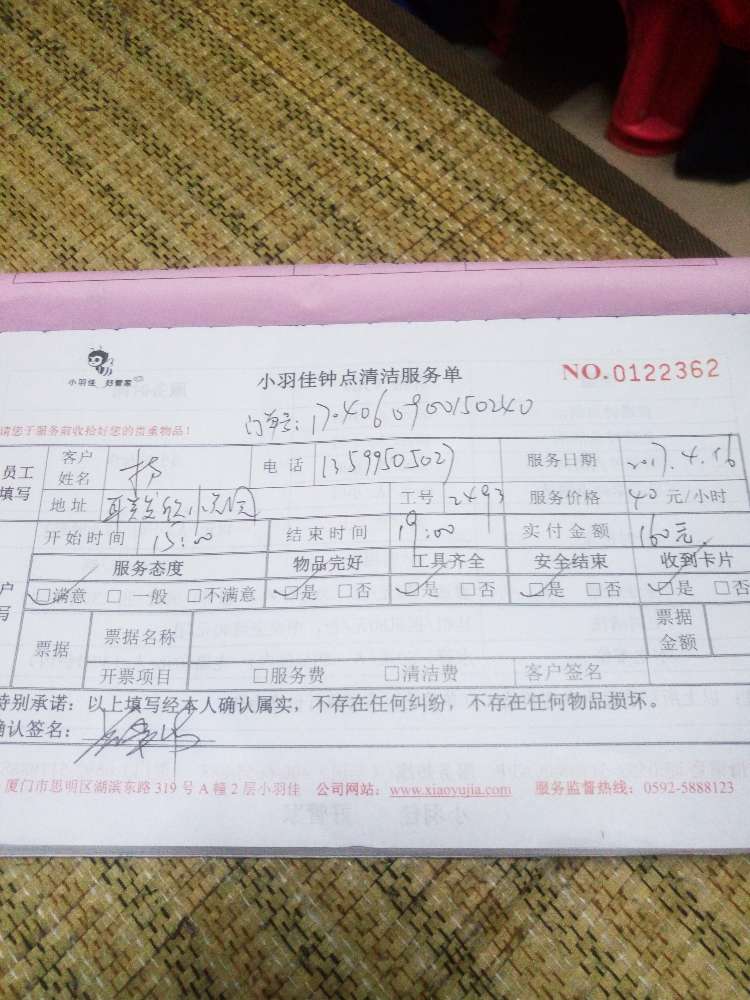 小羽佳 好管家
小羽佳钟点清洁服务单
NO.0122362
请您于服务前收拾好您的贵重物品！
订单号：1704060900150240
员工填写 客户姓名 杨 电话 13599505027 服务日期 2017.4.16
地址 工号 2493 服务价格 40 元/小时
开始时间 15:00 结束时间 19:00 实付金额 160元
服务态度 物品完好 工具齐全 安全结束 收到卡片
☑满意 □一般 □不满意 ☑是 □否 ☑是 □否 ☑是 □否 ☑是 □否
票据 票据名称 票据金额
开票项目 □服务费 □清洁费 客户签名
特别承诺：以上填写经本人确认属实，不存在任何纠纷，不存在任何物品损坏。
确认签名：
厦门市思明区湖滨东路 319 号 A 幢 2 层小羽佳 公司网站：www.xiaoyujia.com 服务监督热线：0592-5888123